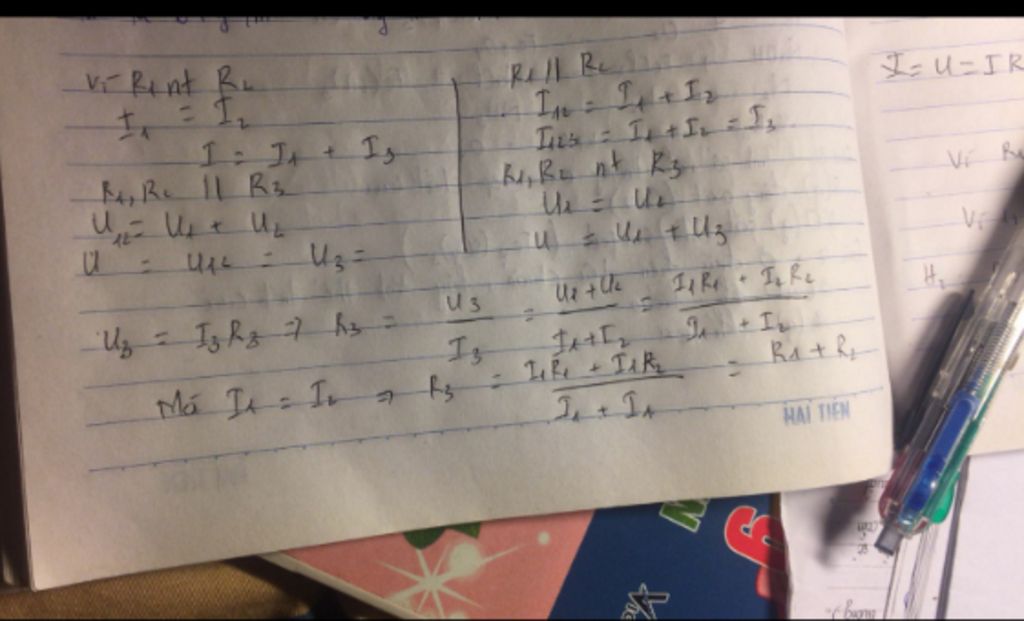 Vì R1 nt R2
I1 = I2
I = I1 + I3
R1, R2 // R3
U12 = U1 + U2
U = U12 = U3 =
R1 // R2
I12 = I1 + I2
I123 = I1 + I2 = I3
R1, R2 nt R3
U1 = U2
U = U1 + U3
U3 = I3R3 => R3 = U3 / I3 = U1 + U2 / I1 + I2 = I1R1 + I2R2 / I1 + I2
Mà I1 = I2 => R3 = I1R1 + I1R2 / I1 + I1 = R1 + R2
HẢI TIẾN
I = U = I R
Vì R1
Vì
9